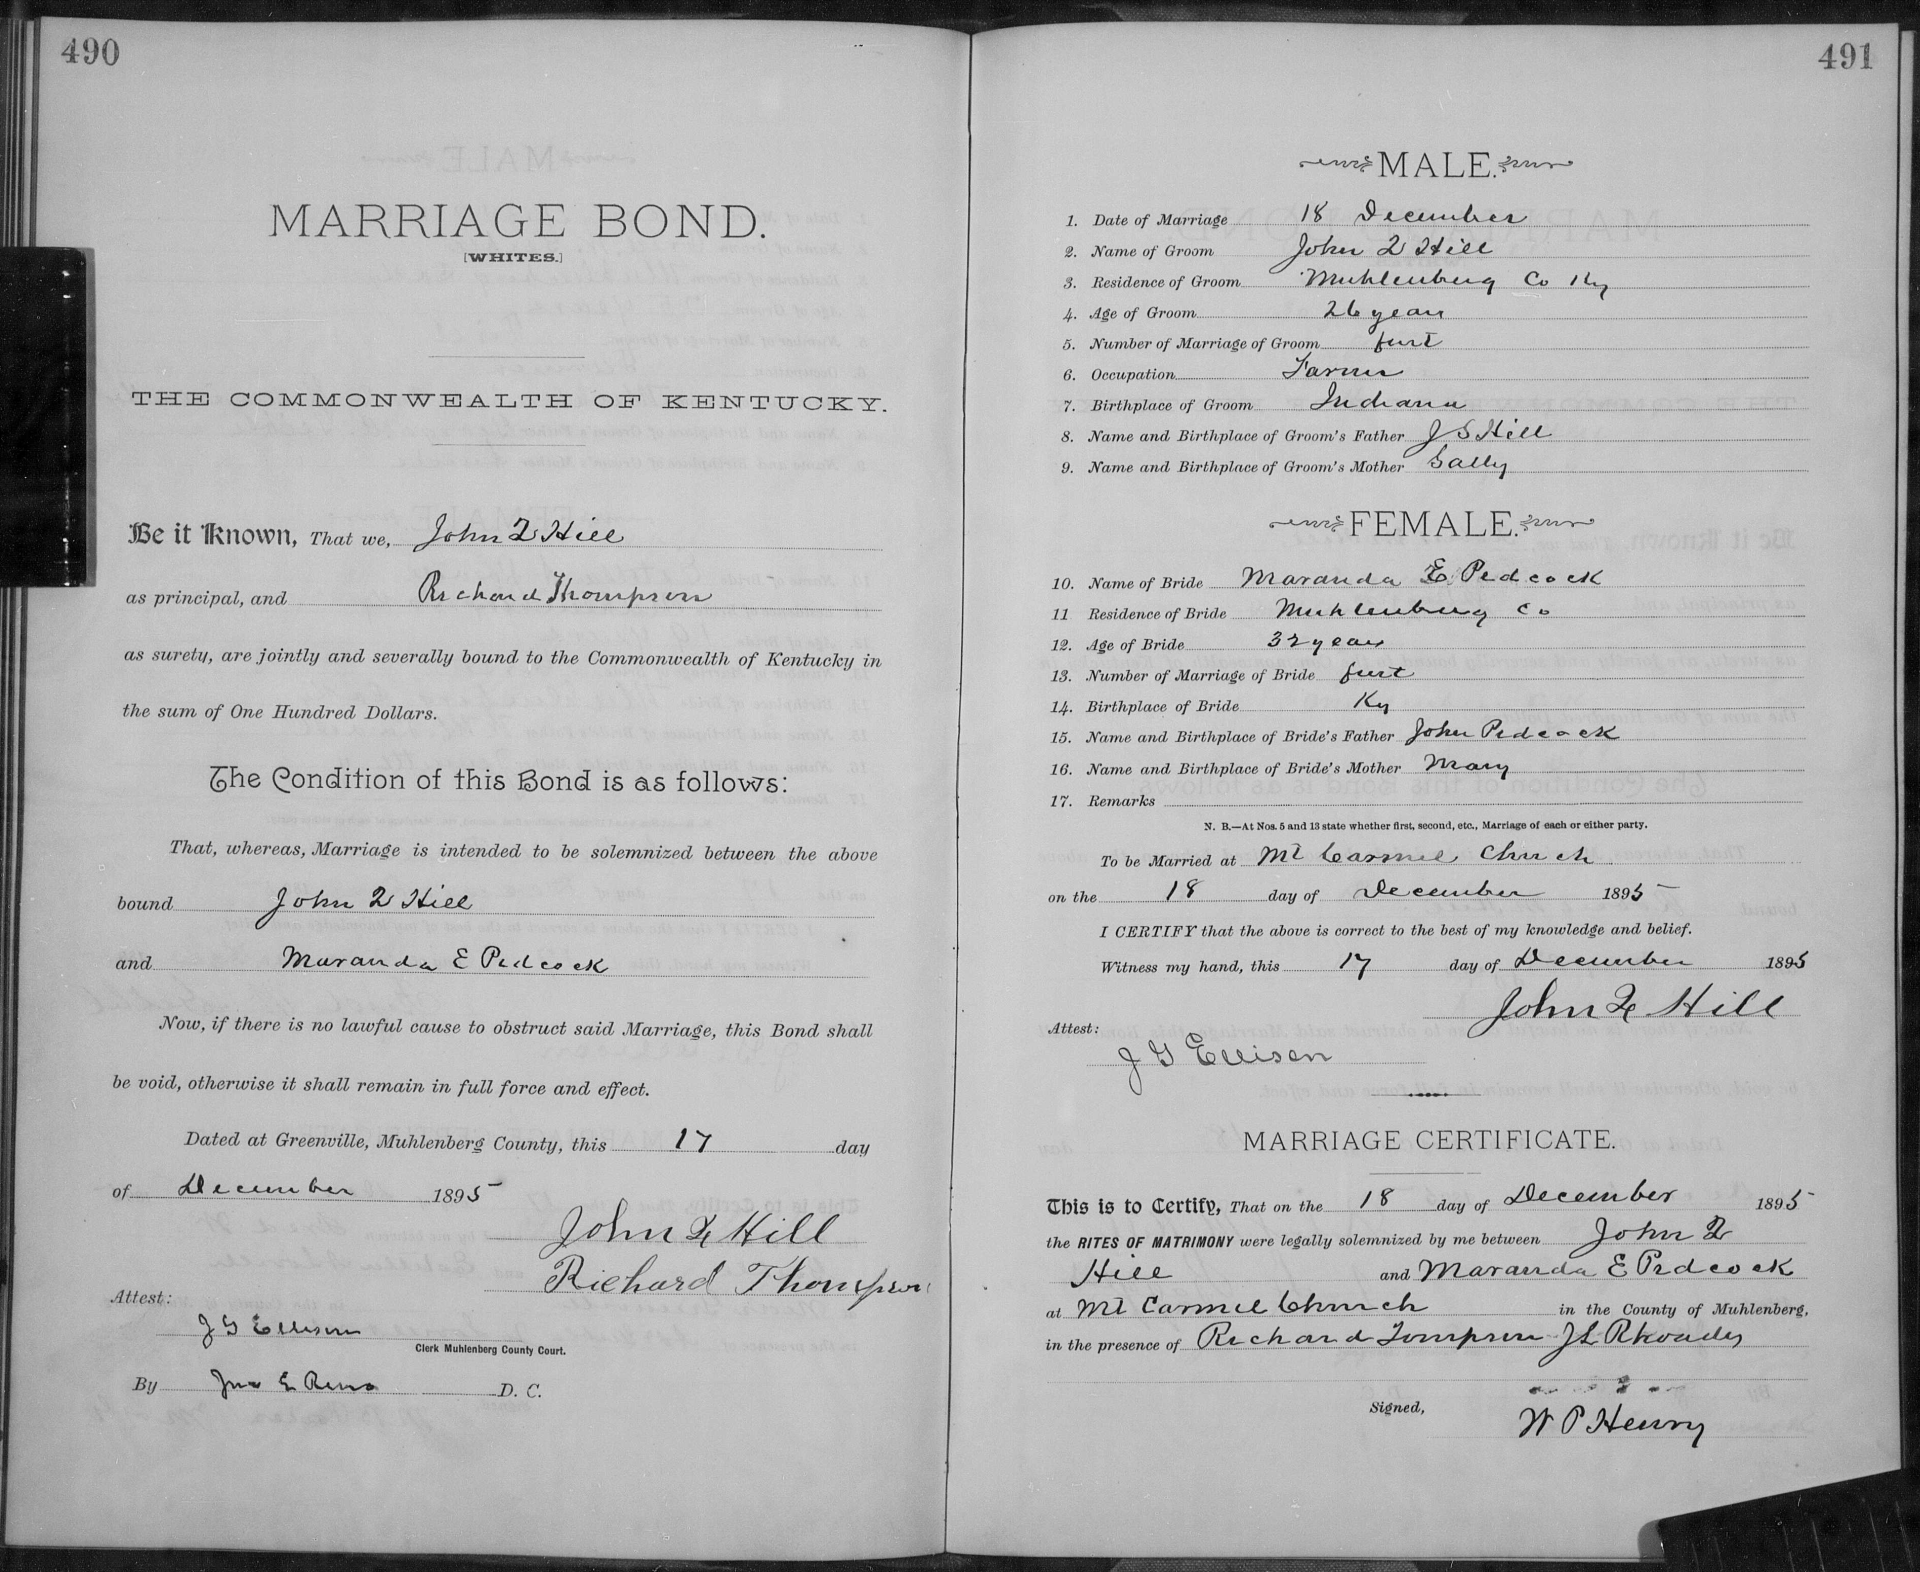 490
MARRIAGE BOND.
[WHITES.]
THE COMMONWEALTH OF KENTUCKY.
Be it Known, That we, John Q Hill
as principal, and Richard Thompson
as surety, are jointly and severally bound to the Commonwealth of Kentucky in
the sum of One Hundred Dollars.
The Condition of this Bond is as follows:
That, whereas, Marriage is intended to be solemnized between the above
bound John Q Hill
and Maranda E Pedcock
Now, if there is no lawful cause to obstruct said Marriage, this Bond shall
be void, otherwise it shall remain in full force and effect.
Dated at Greenville, Muhlenberg County, this 17 day
of December 1895
John Q Hill
Richard Thompson
Attest:
J G Ellison
Clerk Muhlenberg County Court.
By Jno E Reno D. C.
491
MALE.
1. Date of Marriage 18 December
2. Name of Groom John Q Hill
3. Residence of Groom Muhlenburg Co Ky
4. Age of Groom 26 year
5. Number of Marriage of Groom first
6. Occupation Farmer
7. Birthplace of Groom Indiana
8. Name and Birthplace of Groom's Father J S Hill
9. Name and Birthplace of Groom's Mother Sally
FEMALE.
10. Name of Bride Maranda E Pedcock
11 Residence of Bride Muhlenburg Co
12. Age of Bride 32 year
13. Number of Marriage of Bride first
14. Birthplace of Bride Ky
15. Name and Birthplace of Bride's Father John Pedcock
16. Name and Birthplace of Bride's Mother Mary
17. Remarks
N. B.—At Nos. 5 and 13 state whether first, second, etc., Marriage of each or either party.
To be Married at Mt Carmel Church
on the 18 day of December 1895
I CERTIFY that the above is correct to the best of my knowledge and belief.
Witness my hand, this 17 day of December 1895
John Q Hill
Attest:
J G Ellison
MARRIAGE CERTIFICATE.
This is to Certify, That on the 18 day of December 1895
the RITES OF MATRIMONY were legally solemnized by me between John Q
Hill and Maranda E Pedcock
at Mt Carmel Church in the County of Muhlenberg,
in the presence of Richard Tompson J L Rhoades
Signed,
W P Henry